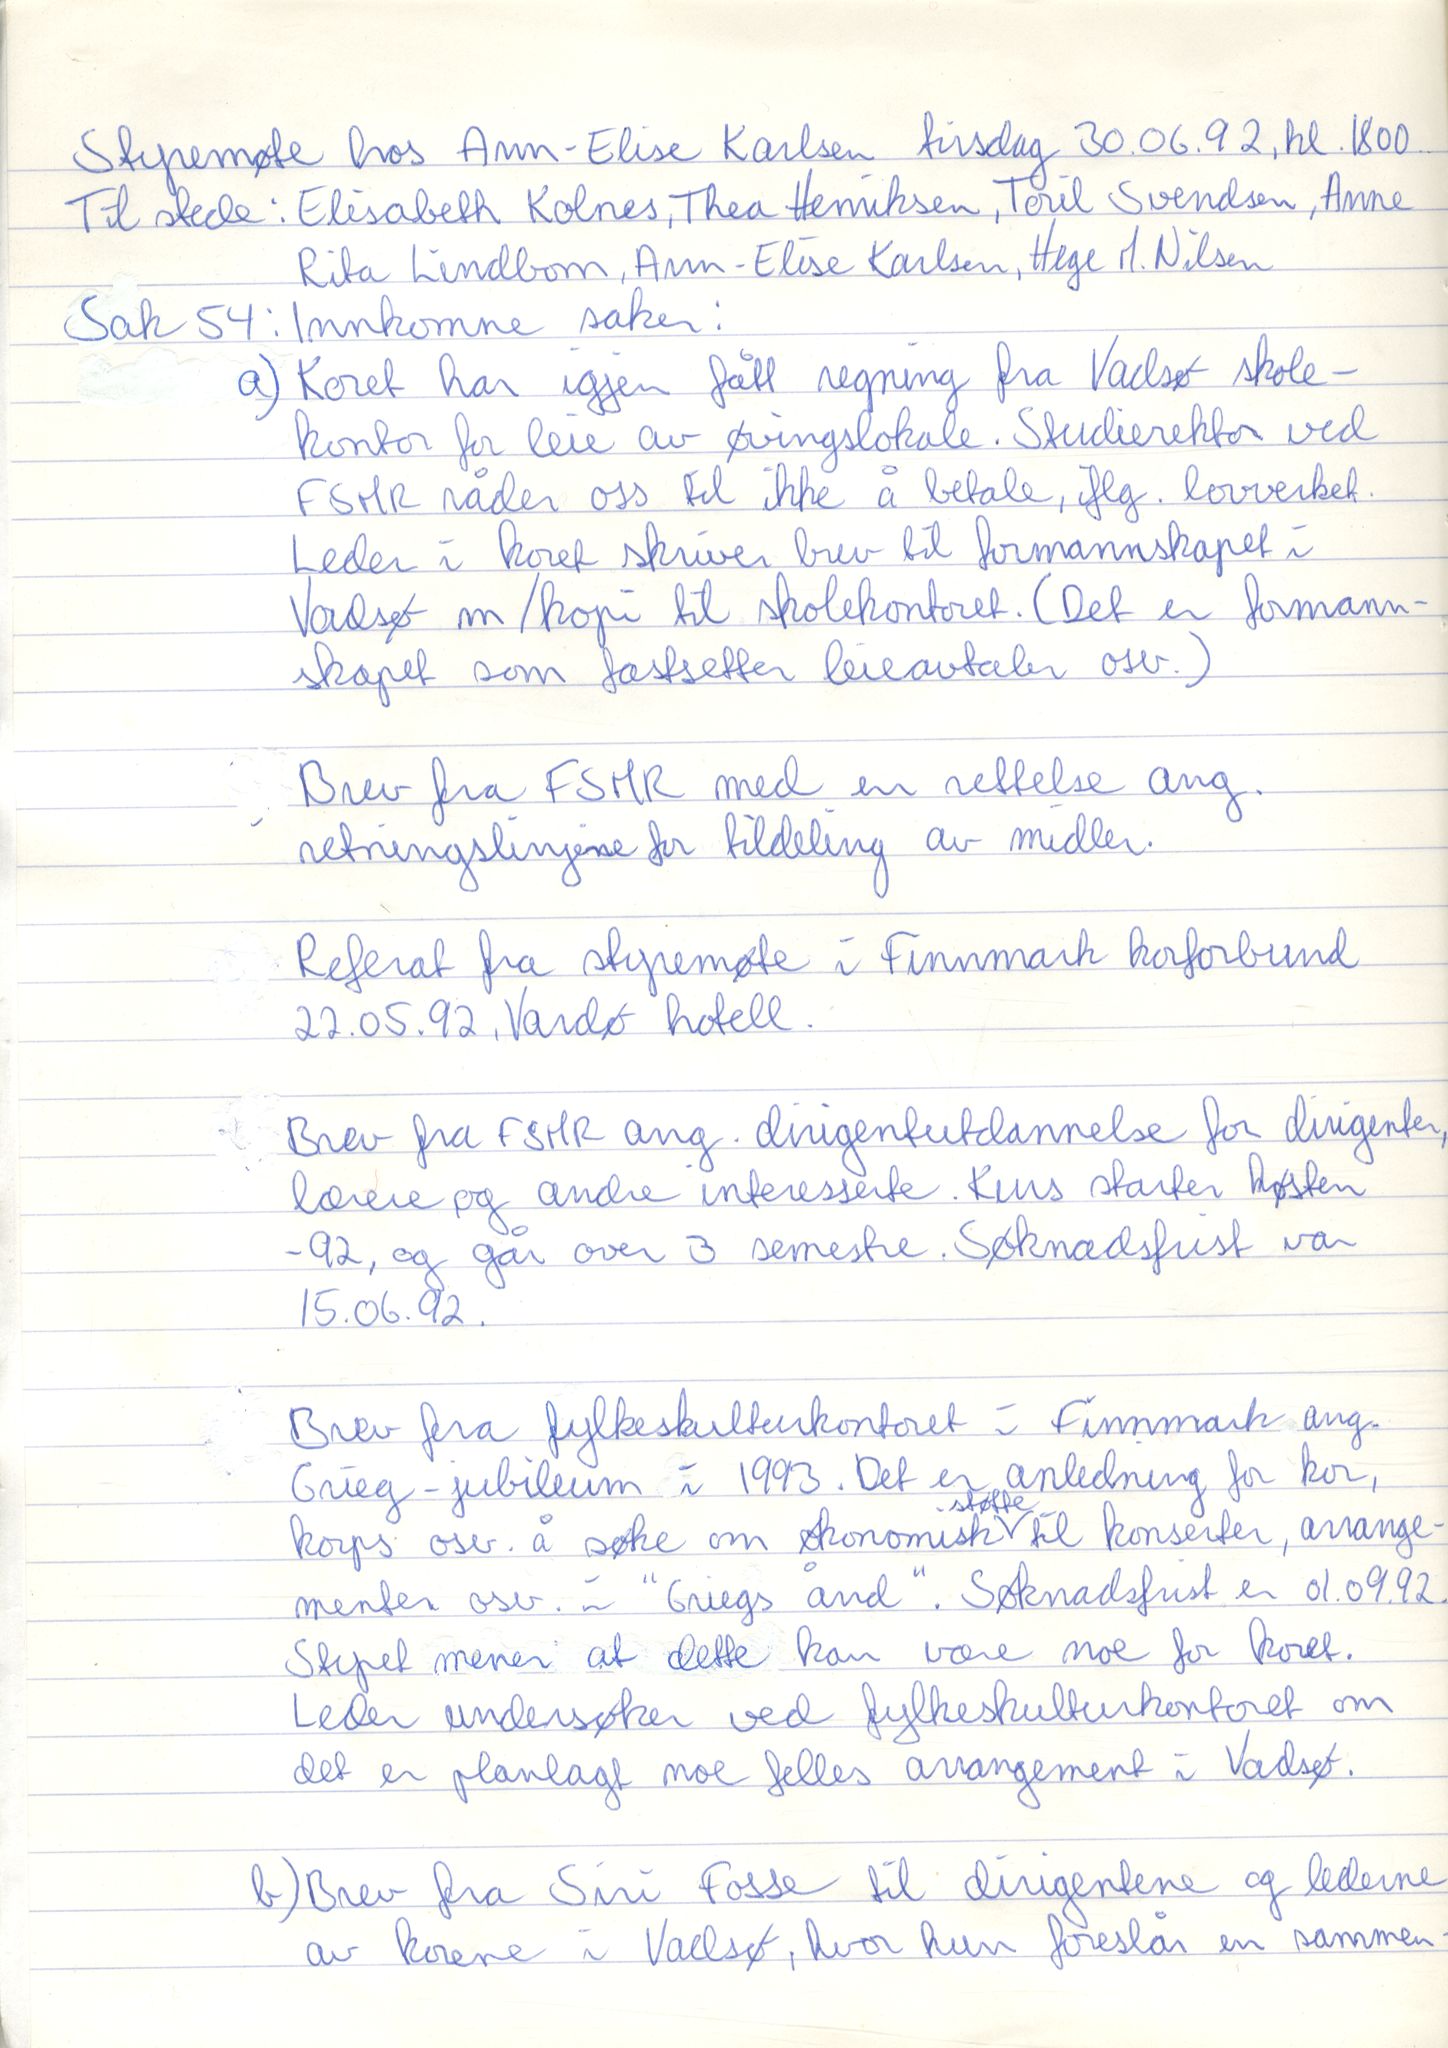 Styremøte hos Ann-Elise Karlsen tirsdag 30.06.92, kl. 1800.
Til stede: Elisabeth Kolnes, Thea Henriksen, Toril Svendsen, Anne
Rita Lindbom, Ann-Elise Karlsen, Hege M. Nilsen
Sak 54: Innkomne saker:
a) Koret har igjen fått regning fra Vadsø skole-
kontor for leie av øvingslokale. Studierektor ved
FSMR råder oss til ikke å betale, iflg. lovverket.
Leder i koret skriver brev til formannskapet i
Vadsø m/kopi til skolekontoret. (Det er formann-
skapet som fastsetter leieavtaler osv.)
Brev fra FSMR med en rettelse ang.
retningslinjene for tildeling av midler.
Referat fra styremøte i Finnmark korforbund
22.05.92, Vardø hotell.
Brev fra FSMR ang. dirigentutdannelse for dirigenter,
lærere og andre interesserte. Kurs starter høsten
-92, og går over 3 semestre. Søknadsfrist var
15.06.92.
Brev fra fylkeskulturkontoret i Finnmark ang.
Grieg-jubileum i 1993. Det er anledning for kor,
korps osv. å søke om økonomisk støtte til konserter, arrange-
menter osv. i "Griegs ånd". Søknadsfrist er 01.09.92.
Styret mener at dette kan være noe for koret.
Leder undersøker ved fylkeskulturkontoret om
det er planlagt noe felles arrangement i Vadsø.
b) Brev fra Siri Fosse til dirigentene og lederne
av korene i Vadsø, hvor hun foreslår en sammen-